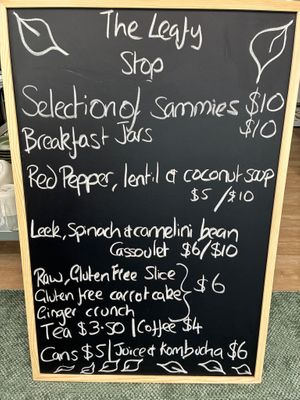 The Leafy
Stop
Selection of Sammies $10
Breakfast Jars $10
Red Pepper, lentil & coconut soup
$5 / $10
Leek, Spinach & cannelini bean
Cassoulet $6/$10
Raw, Gluten Free Slice
Gluten free carrot cake } $6
Ginger crunch
Tea $3.50 | Coffee $4
Cans $5 | Juice & Kombucha $6